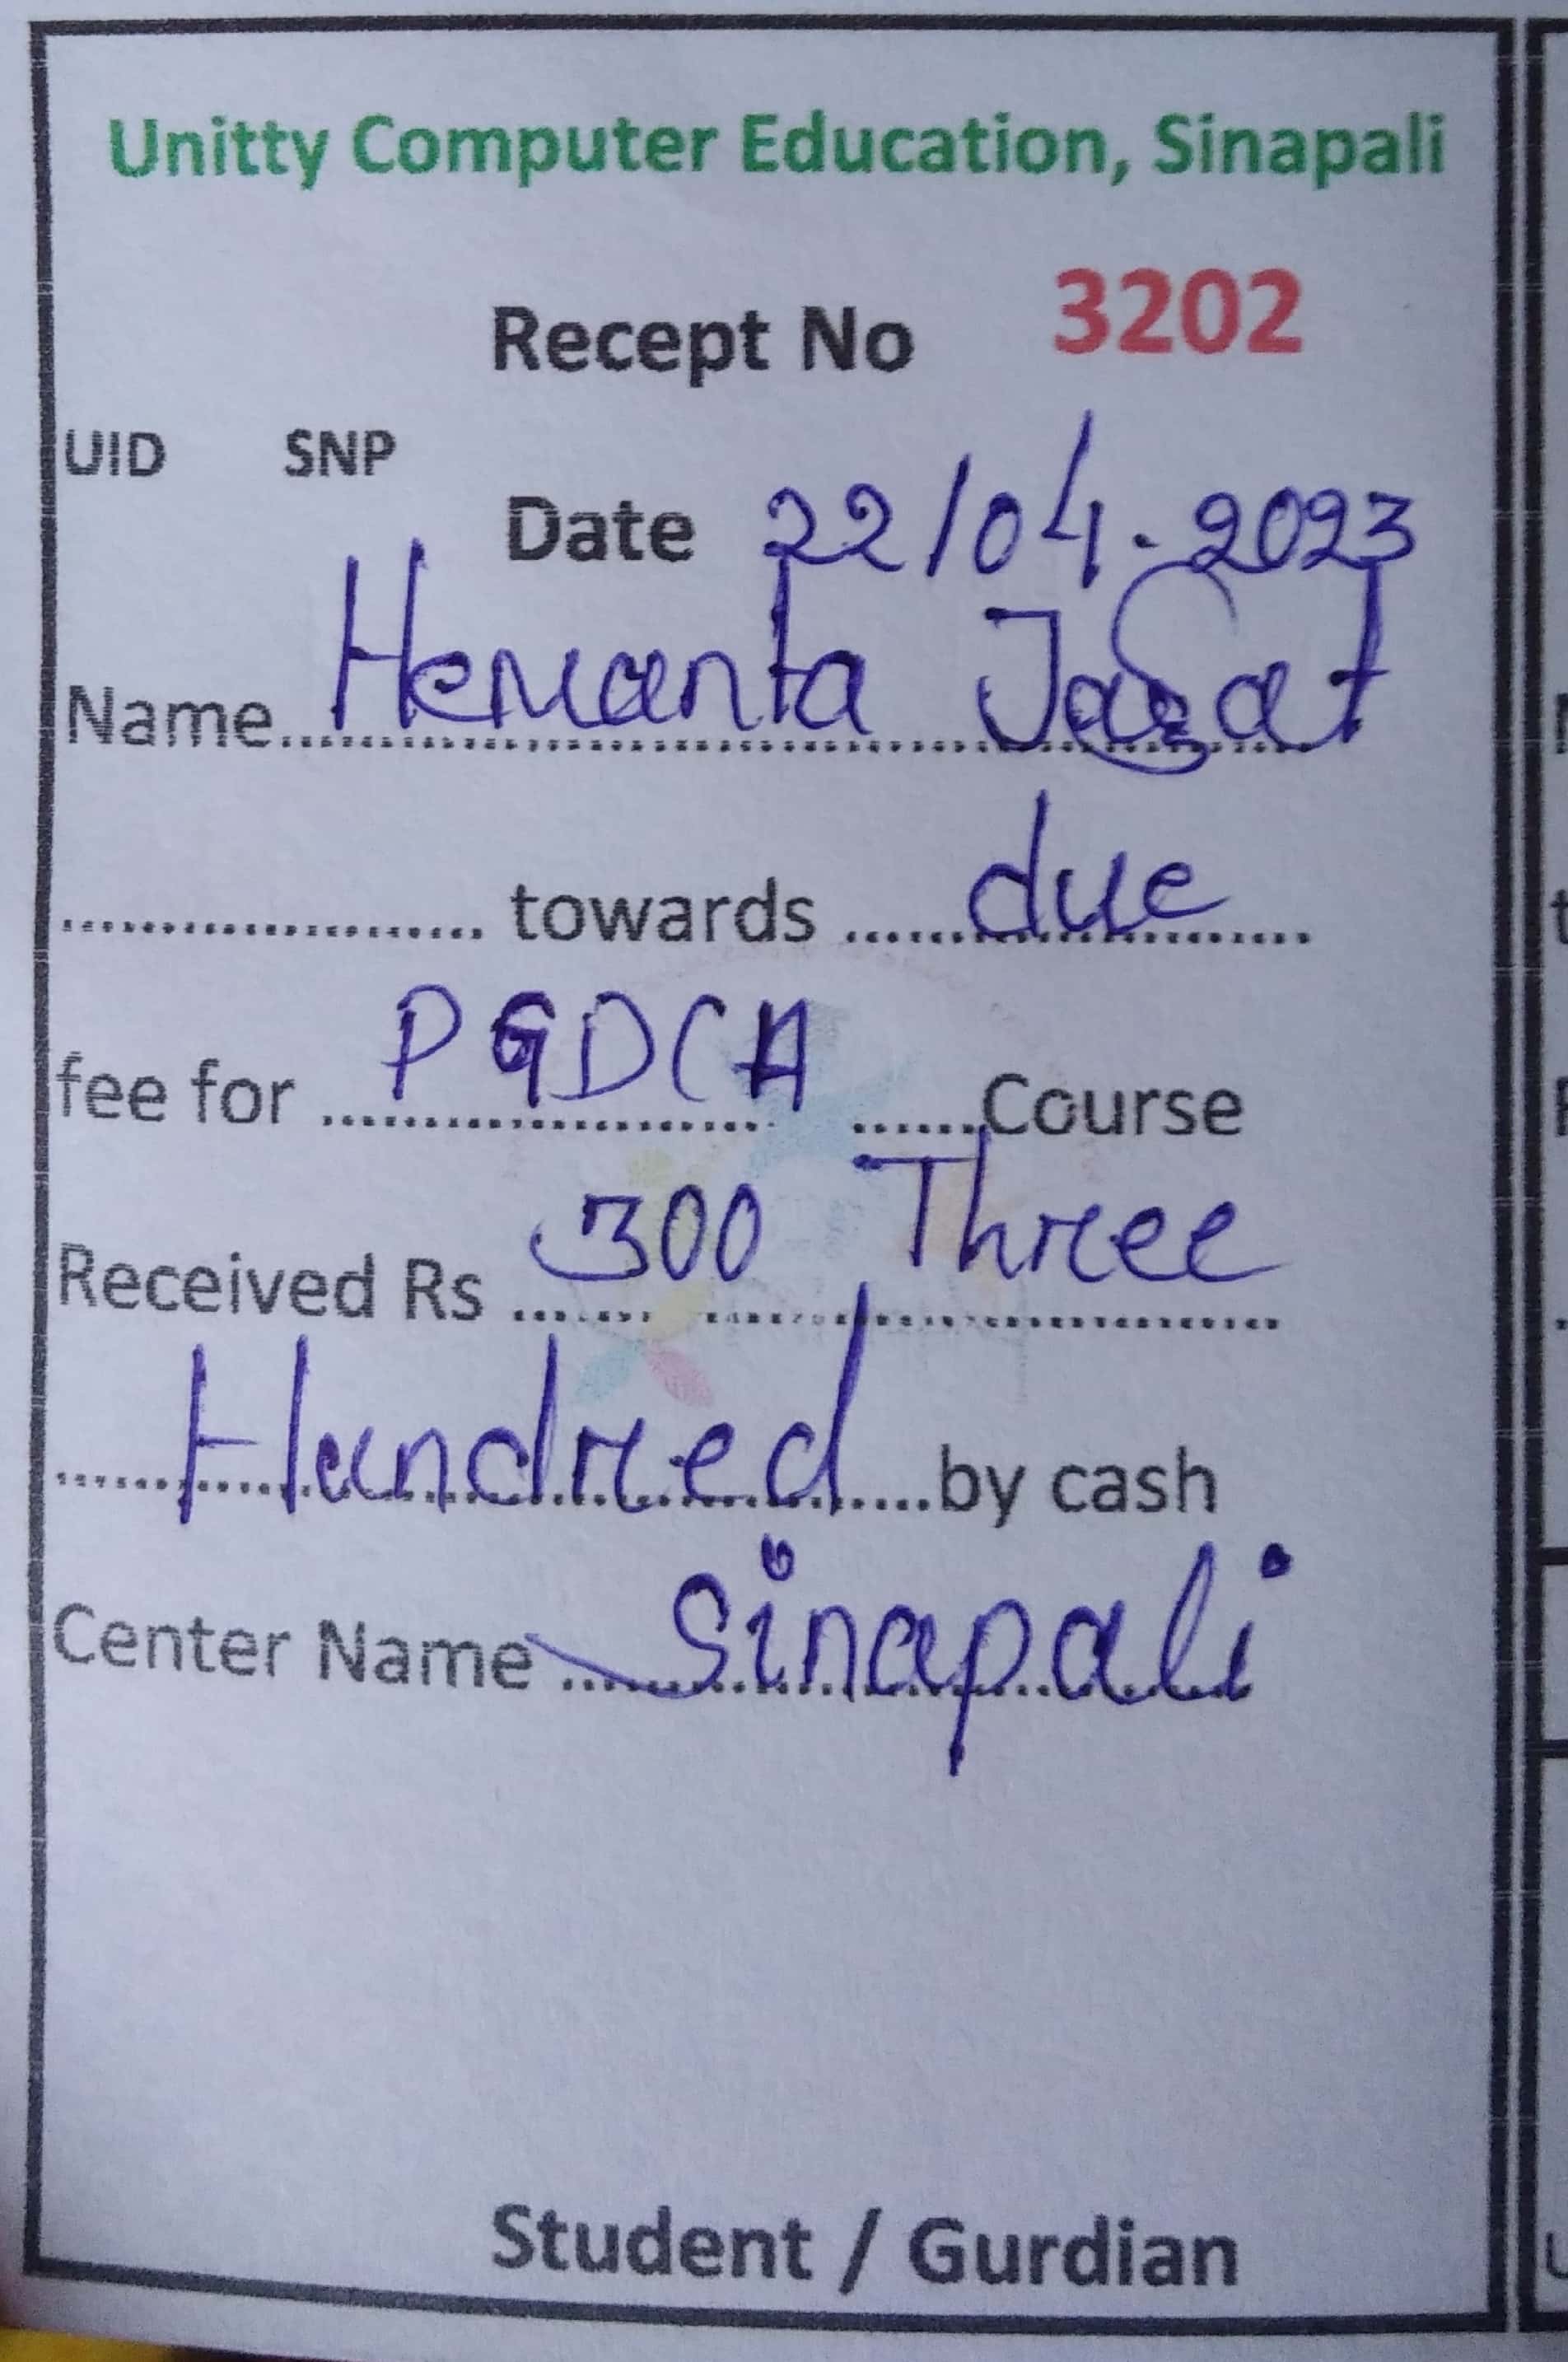 Unitty Computer Education, Sinapali
Recept No 3202
UID SNP
Date 22/04.2023
Name Hemanta Jagat
towards due
fee for PGDCA Course
Received Rs 300 Three
Hundred by cash
Center Name Sinapali
Student / Gurdian